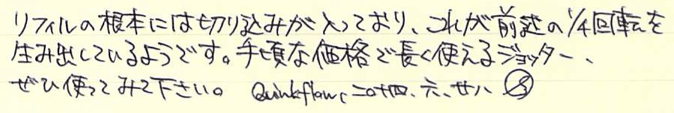 リフィルの根本には切り込みが入っており、これが前述の1/4回転を
生み出しているようです。手頃な価格で長く使えるジョッター、
ぜひ使ってみて下さい。 Quinkflow 二〇十四、六、廿八